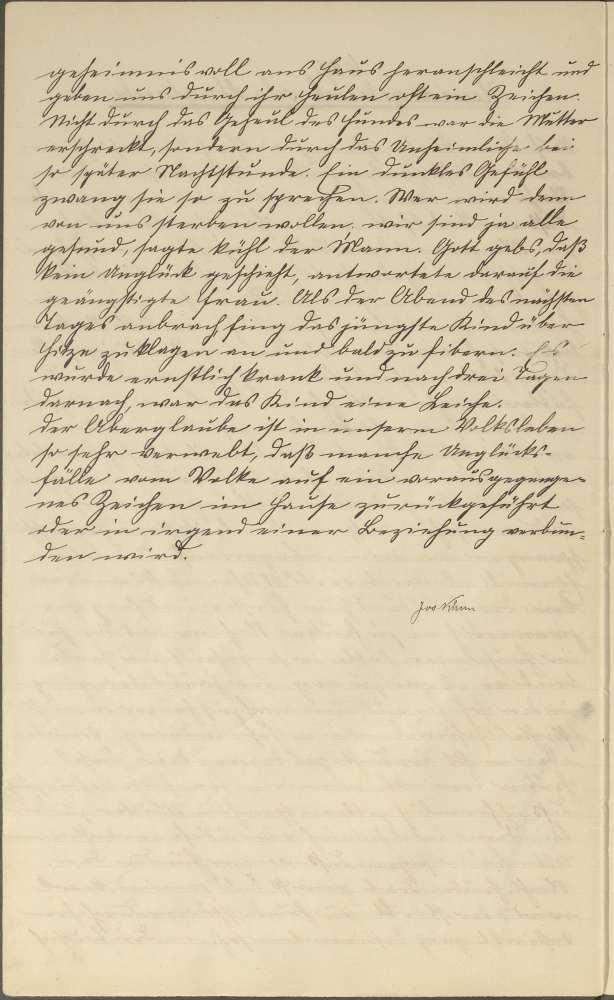 geheimnisvoll ans Haus heranschleicht und
geben uns durch ihr Heulen oft ein Zeichen.
Nicht durch das Geheul des Hundes war die Mutter
erschreckt, sondern durch das Unheimliche bei
so später Nachtstunde. Ein dunkles Gefühl
zwang sie so zu sprechen. Wer wird denn
von uns sterben wollen, wir sind ja alle
gesund, sagte kühl der Mann. Gott gebs, daß
kein Unglück geschieht, antwortete darauf die
geängstigte Frau. Als der Abend des nächsten
Tages anbrach fing das jüngste Kind über
Hitze zu klagen an und bald zu fibern. Es
wurde ernstlich krank und nach drei Tagen
darnach, war das Kind eine Leiche.
Der Aberglaube ist in unserm Volksleben
so sehr verwebt, daß manche Unglücks-
fälle vom Volke auf ein vorausgegange-
nes Zeichen im Hause zurückgeführt
oder in irgend einer Beziehung verbun-
den wird.